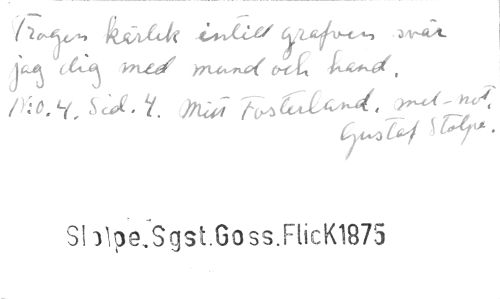 Trogen kärlek intill grafven svär
jag dig med mund och hand.
N:o. 4. Sid. 4. Mitt Fosterland. mel-not.
Gustaf Stolpe.
Stolpe.Sgst.Goss.FlicK1875